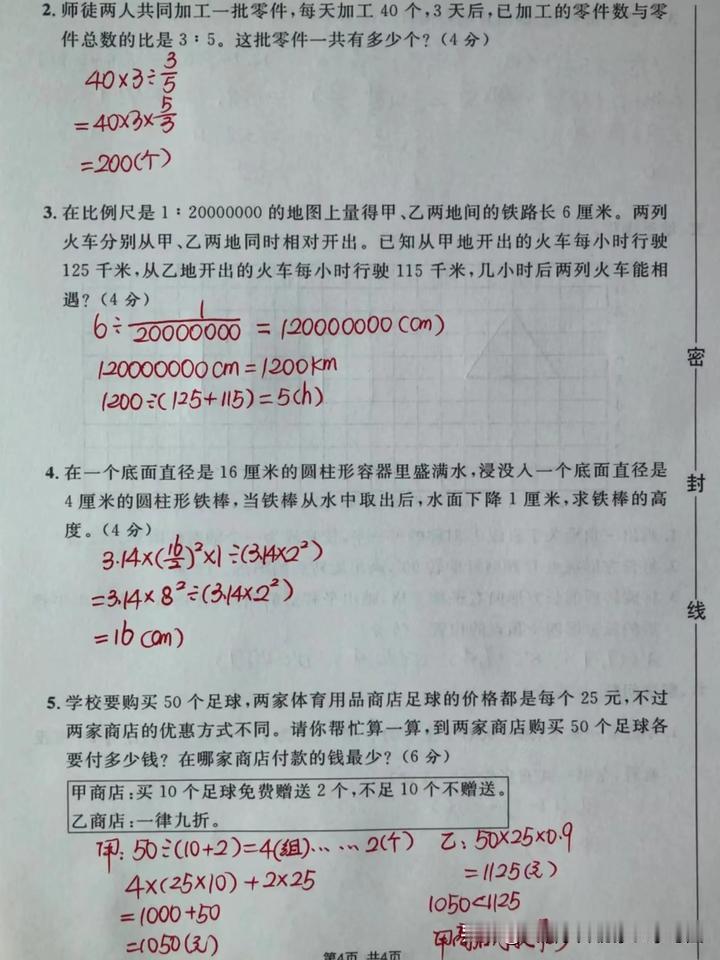 2. 师徒两人共同加工一批零件，每天加工 40 个，3 天后，已加工的零件数与零
件总数的比是 3∶5。这批零件一共有多少个？（4 分）
40×3÷3/5
=40×3×5/3
=200(个)
3. 在比例尺是 1∶20000000 的地图上量得甲、乙两地间的铁路长 6 厘米。两列
火车分别从甲、乙两地同时相对开出。已知从甲地开出的火车每小时行驶
125 千米，从乙地开出的火车每小时行驶 115 千米，几小时后两列火车能相
遇？（4 分）
6÷1/20000000=120000000(cm)
120000000cm=1200km
1200÷(125+115)=5(h)
密
4. 在一个底面直径是 16 厘米的圆柱形容器里盛满水，浸没入一个底面直径是
4 厘米的圆柱形铁棒，当铁棒从水中取出后，水面下降 1 厘米，求铁棒的高
度。（4 分）
封
3.14×(16/2)²×1÷(3.14×2²)
=3.14×8²÷(3.14×2²)
=16(cm)
线
5. 学校要购买 50 个足球，两家体育用品商店足球的价格都是每个 25 元，不过
两家商店的优惠方式不同。请你帮忙算一算，到两家商店购买 50 个足球各
要付多少钱？在哪家商店付款的钱最少？（6 分）
甲商店：买 10 个足球免费赠送 2 个，不足 10 个不赠送。
乙商店：一律九折。
甲：50÷(10+2)=4(组)……2(个)
4×(25×10)+2×25
=1000+50
=1050(元)
乙：50×25×0.9
=1125(元)
1050<1125
甲商店
第4页 共4页